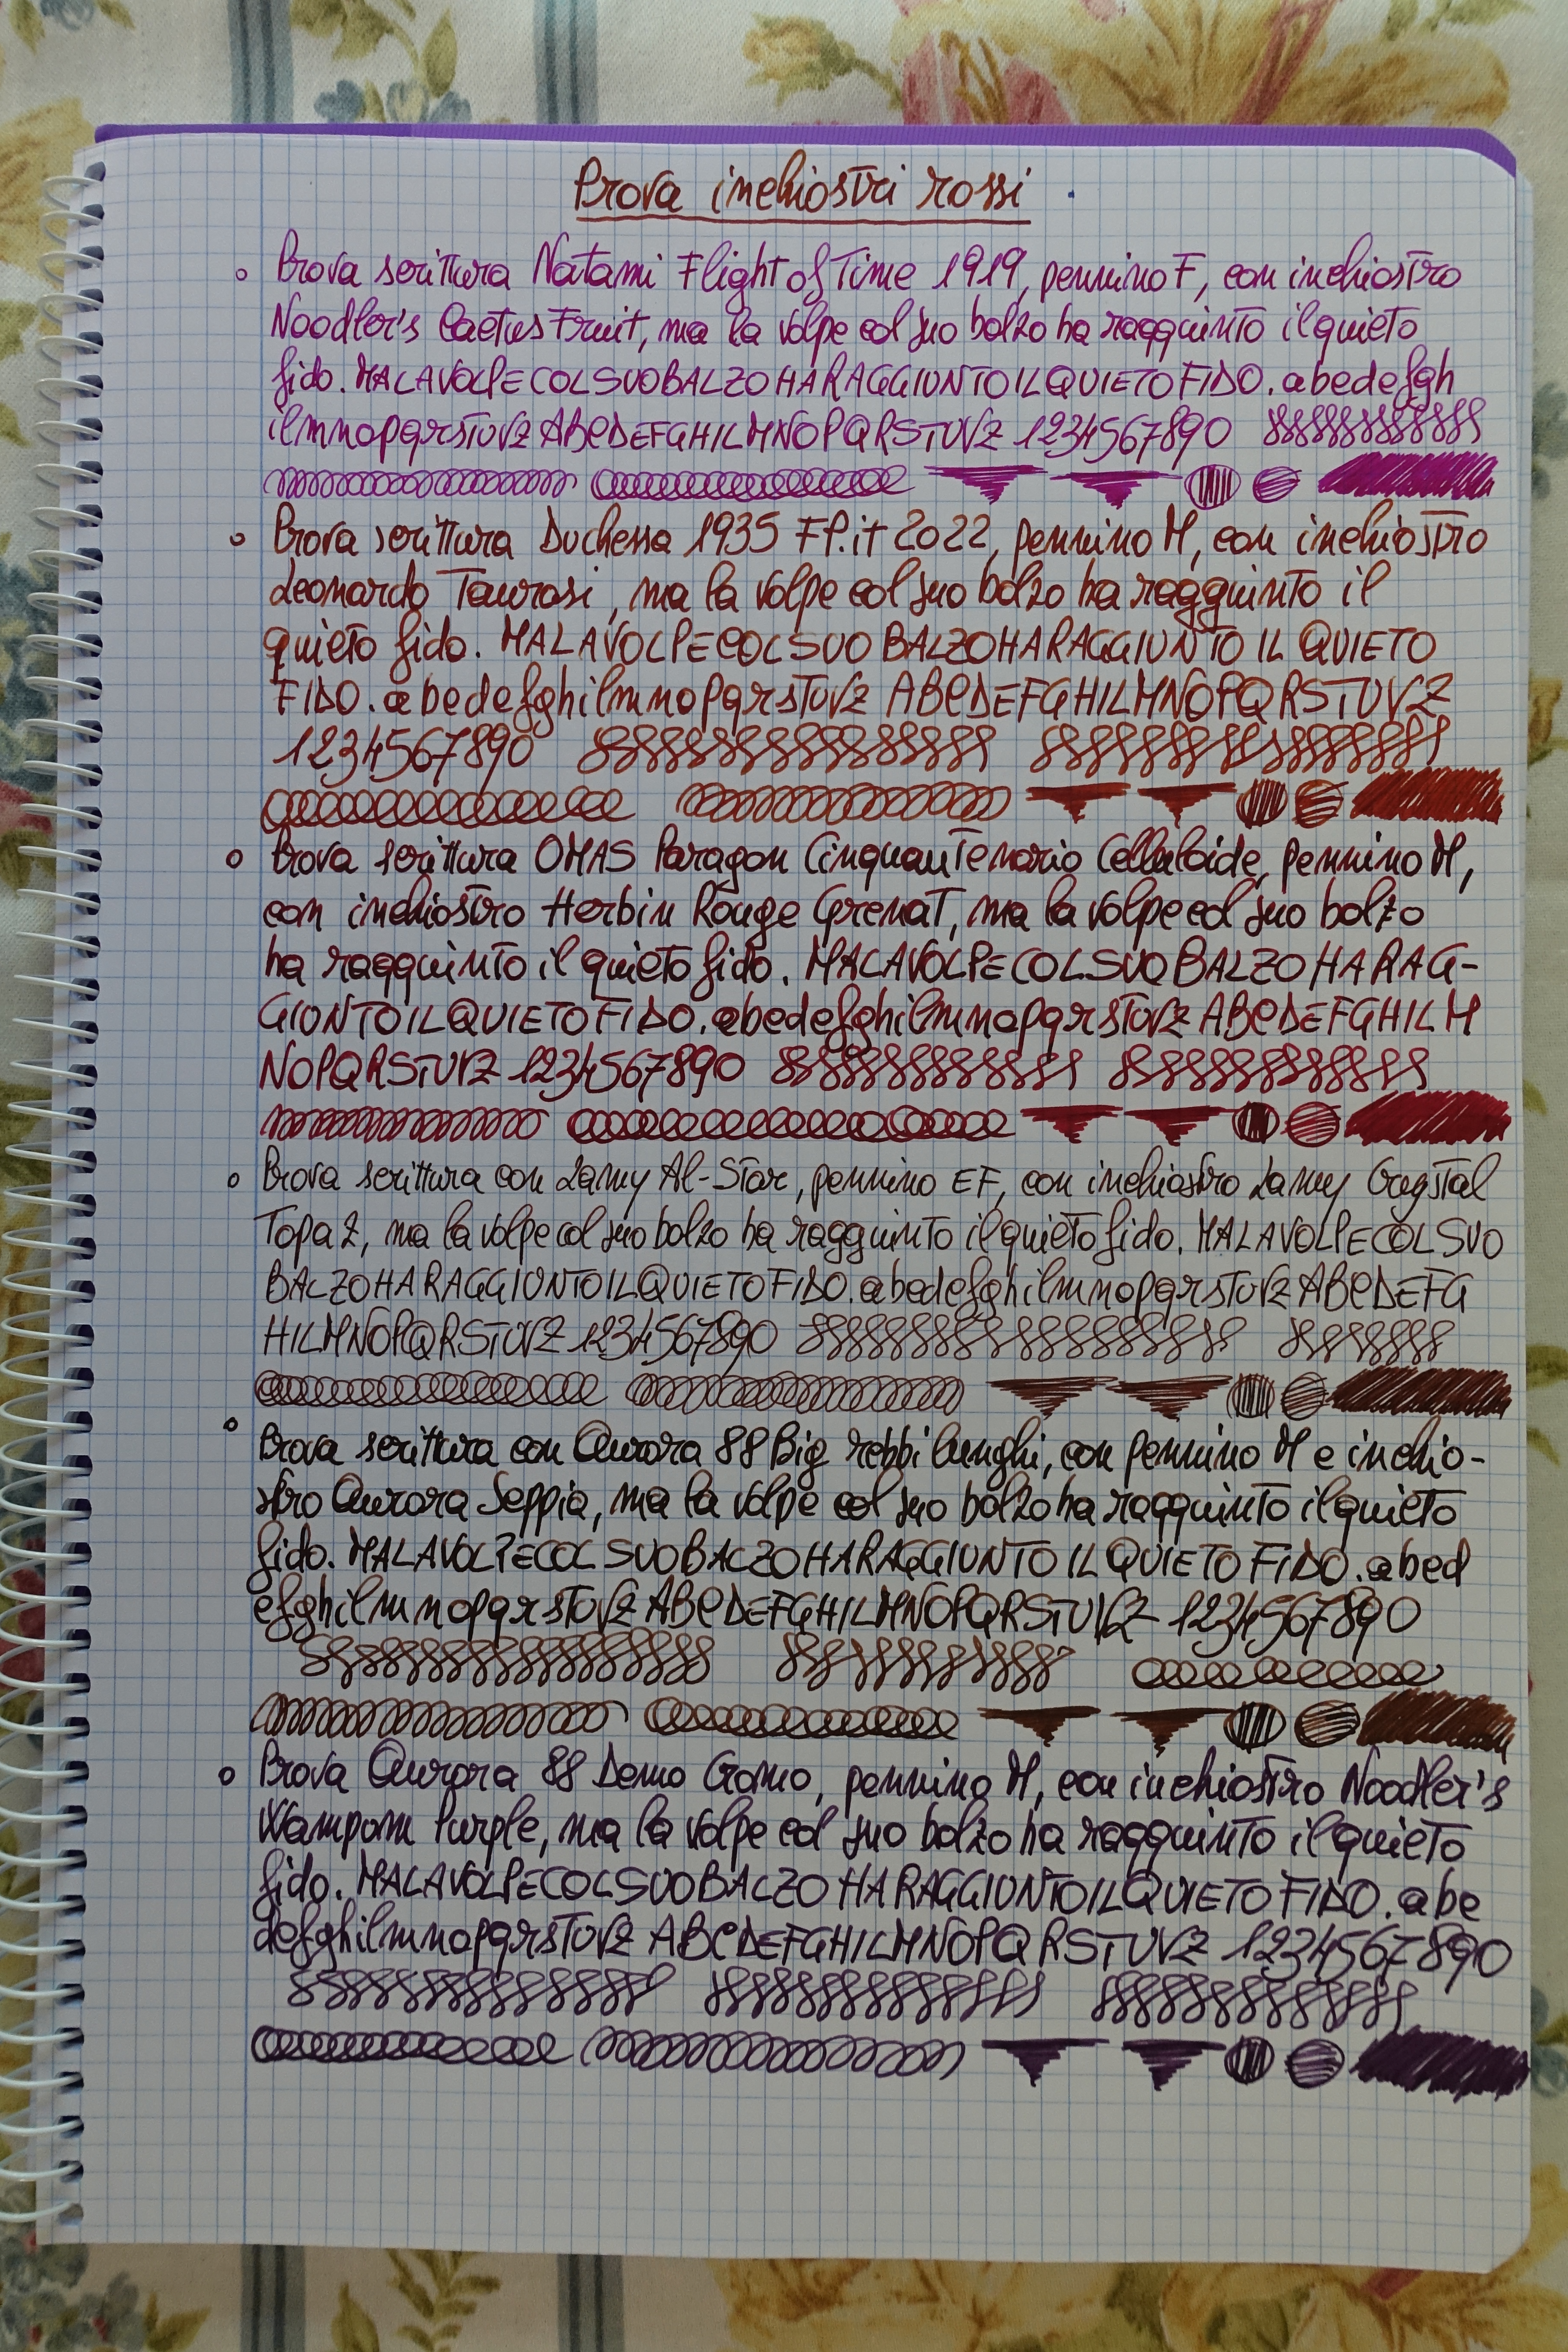 Prova inchiostri rossi
Prova scrittura Natami Flight of Time 1919, pennino F, con inchiostro
Noodler's Cactus Fruit, ma la volpe col suo balzo ha raggiunto il quieto
fido. MALAVOLPECOLSUOBALZOHARAGGIUNTOILQUIETOFIDO. abcdefgh
ilmnopqrstuvz ABCDEFGHILMNOPQRSTUVZ 1234567890
Prova scrittura Duchessa 1935 FP.it 2022, pennino M, con inchiostro
Leonardo Taurasi, ma la volpe col suo balzo ha raggiunto il
quieto fido. MALAVOLPECOLSUO BALZOHARAGGIUNTO IL QUIETO
FIDO. abcdefghilmnopqrstuvz ABCDEFGHILMNOPQRSTUVZ
1234567890
Prova scrittura OMAS Paragon Cinquantenario Celluloide, pennino M,
con inchiostro Herbin Rouge Grenat, ma la volpe col suo balzo
ha raggiunto il quieto fido. MALAVOLPECOLSUOBALZOHARAG-
GIUNTOILQUIETOFIDO. abcdefghilmnopqrstuvz ABCDEFGHILM
NOPQRSTUVZ 1234567890
Prova scrittura con Lamy Al-Star, pennino EF, con inchiostro Lamy Crystal
Topaz, ma la volpe col suo balzo ha raggiunto il quieto fido. MALAVOLPECOLSUO
BALZOHARAGGIUNTOILQUIETOFIDO. abcdefghilmnopqrstuvz ABCDEFG
HILMNOPQRSTUVZ 1234567890
Prova scrittura con Aurora 88 Big rebbi lunghi, con pennino M e inchio-
stro Aurora Seppia, ma la volpe col suo balzo ha raggiunto il quieto
fido. MALAVOLPECOL SUOBALZOHARAGGIUNTO IL QUIETO FIDO. abcd
efghilmnopqrstuvz ABCDEFGHILMNOPQRSTUVZ 1234567890
Prova Aurora 88 Demo Cromo, pennino M, con inchiostro Noodler's
Wampom Purple, ma la volpe col suo balzo ha raggiunto il quieto
fido. MALAVOLPECOLSUOBALZO HARAGGIUNTOILQUIETO FIDO. abc
defghilmnopqrstuvz ABCDEFGHILMNOPQRSTUVZ 1234567890